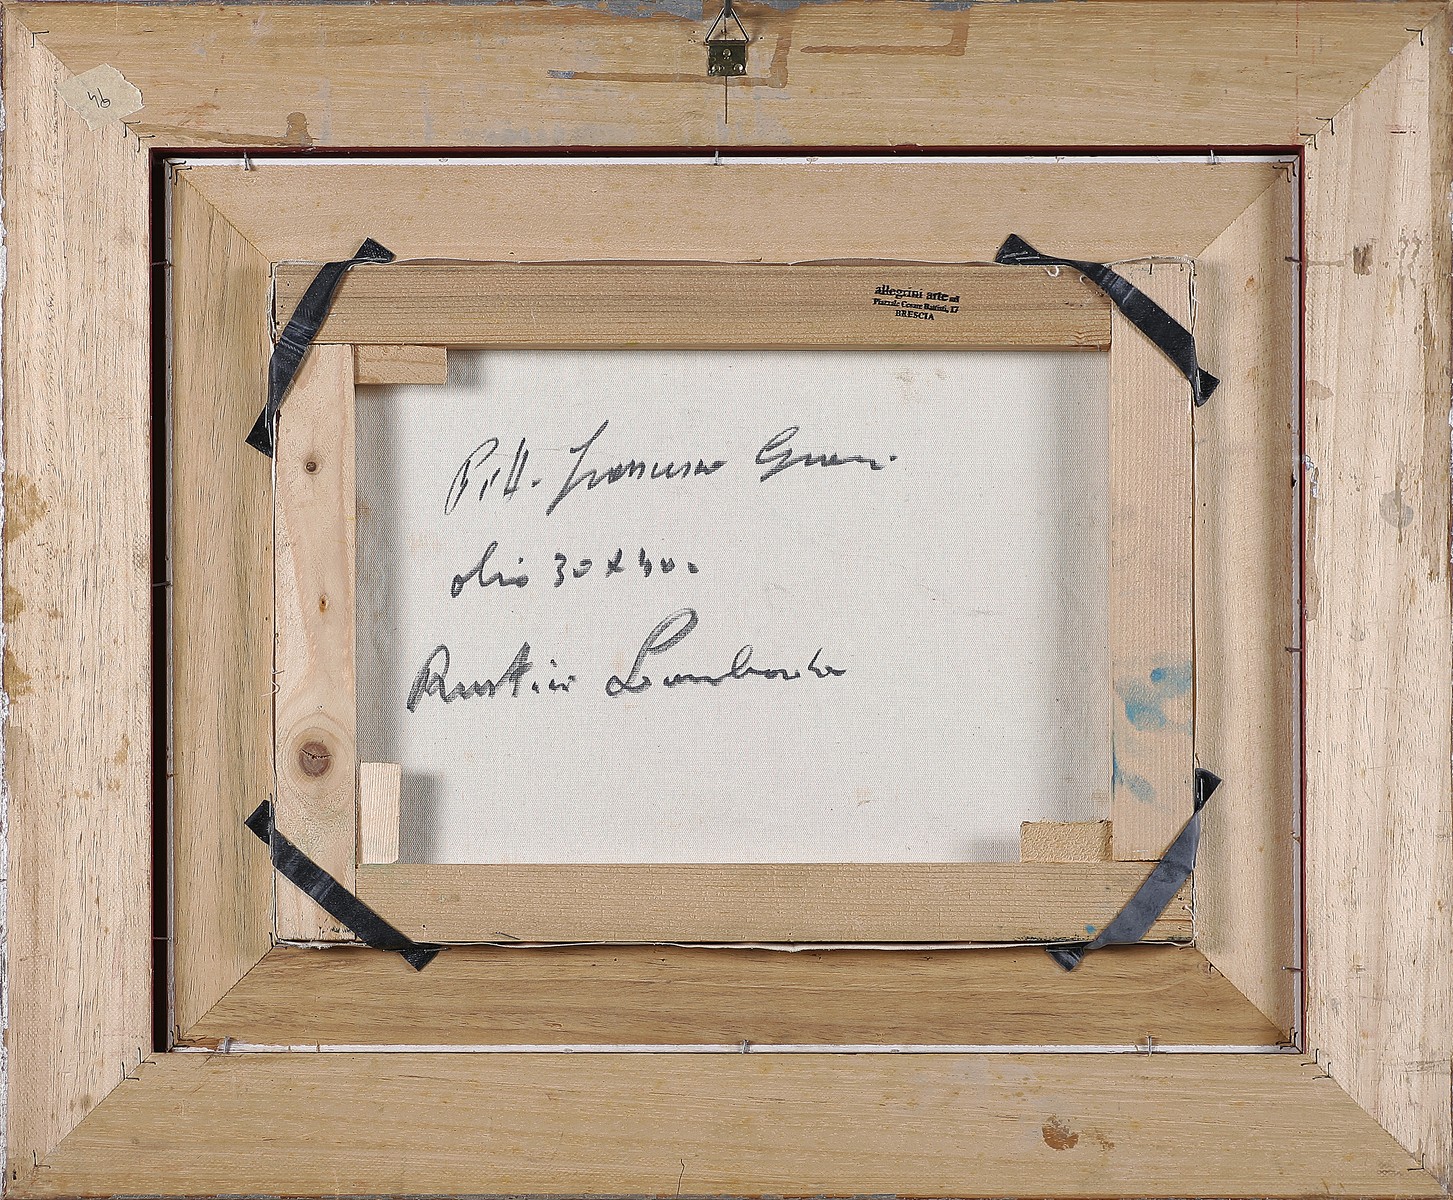 46
allegrini arte srl
Piazzale Cesare Battisti, 17
BRESCIA
Pitt. Francesco
olio 30 x 40.
Rustico Lombardo